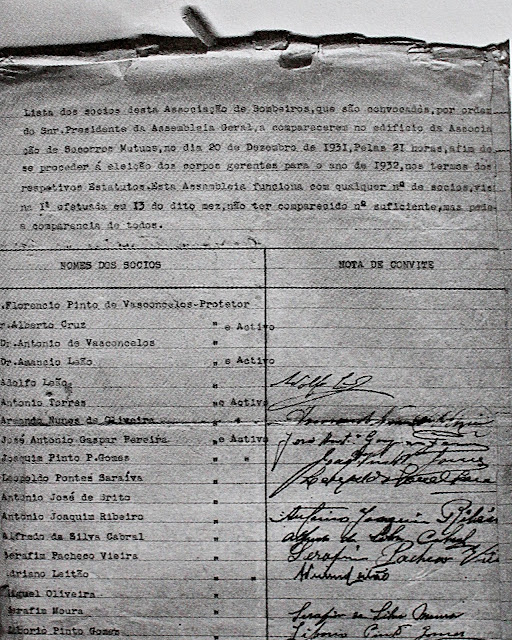 Lista dos socios desta Associação de Bombeiros,que são convocada,por ordem
do Snr.Presidente da Assembleia Geral,a comparecerem no edificio da Associa
ção de Socorros Mutuos,no dia 20 de Dezembro de 1931,Pelas 21 horas,afim de
se proceder á eleição dos corpos gerentes para o ano de 1932,nos termos dos
respetivos Estatutos.Esta Assembleia funciona com qualquer nº de socios,vis
na 1ª efetuada em 13 do dito mez,não ter comparecido nº suficiente,mas pede
a comparencia de todos.
NOMES DOS SOCIOS NOTA DE CONVITE
.Florencio Pinto de Vasconcelos-Protetor
r.Alberto Cruz " e Activo
Dr.Antonio de Vasconcelos "
Dr.Amancio Leão " e Activo
Adolfo Leão "
Antonio Torres " e Activo
Armando Nunes de Oliveira " "
José Antonio Gaspar Pereira " e Activo
Joaquim Pinto P.Gomes " "
Leopoldo Pontes Saraiva "
Antonio José de Brito "
Antonio Joaquim Ribeiro " Antonio Joaquim Ribeiro
Alfredo da Silva Cabral " Alfredo da Silva Cabral
Serafim Pacheco Vieira " Serafim Pacheco Viei
Adriano Leitão " "
Miguel Oliveira "
Serafim Moura " Serafim da Silva Moura
Liborio Pinto Gomes " Liborio Pinto Gomes